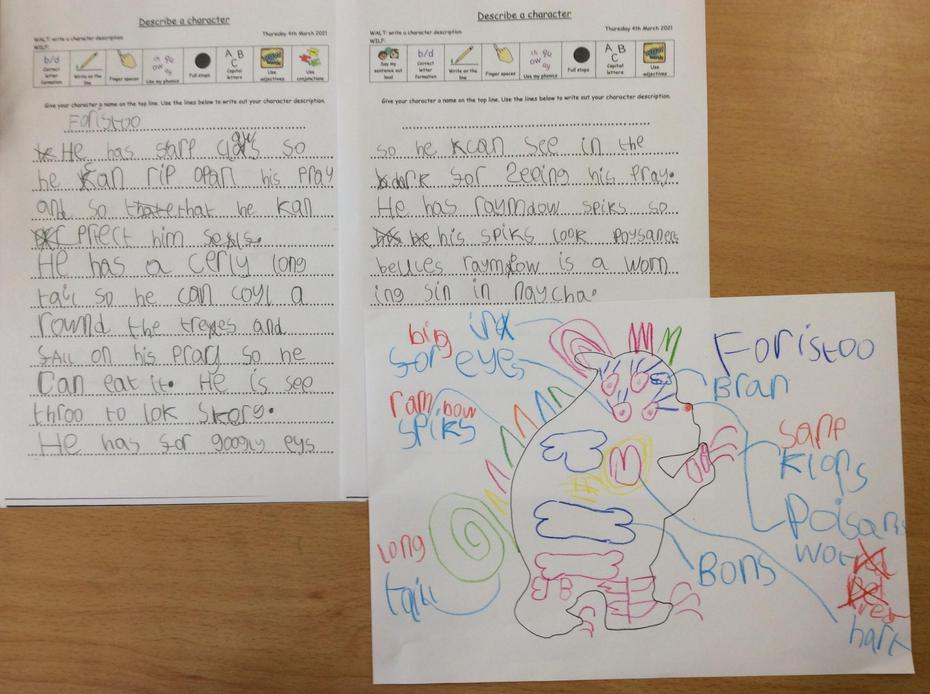 Describe a character
WALT: write a character description. Thursday 4th March 2021
WILF:
b/d Correct letter formation
Write on the line
Finger spaces
ch qu ow ay Use my phonics
Full stops
A B C Capital letters
Use adjectives
Use conjunctions
Give your character a name on the top line. Use the lines below to write out your character description.
Foristoo
He has starp claws so
he kan rip opan his pray
and so that he kan
prtect him
He has a cerly long
tail so he can coyl a
round the treyes and
fall on his pray so he
can eat it. He is see
throo to lok skory.
He has for googly eys
Describe a character
WALT: write a character description. Thursday 4th March 2021
WILF:
Say my sentence out loud
b/d Correct letter formation
Write on the line
Finger spaces
ch qu ow ay Use my phonics
Full stops
A B C Capital letters
Use adjectives
Give your character a name on the top line. Use the lines below to write out your character description.
so he kcan see in the
dark for 2eeing his pray.
He has raymdow spiks so
his spiks look poysaners
beuces raymdow is a worn
ing sin in naycha.
big
for eyes
Foristoo
Bran
ram bow
spiks
sarp
klors
poisans
long
tail
Bons
hart